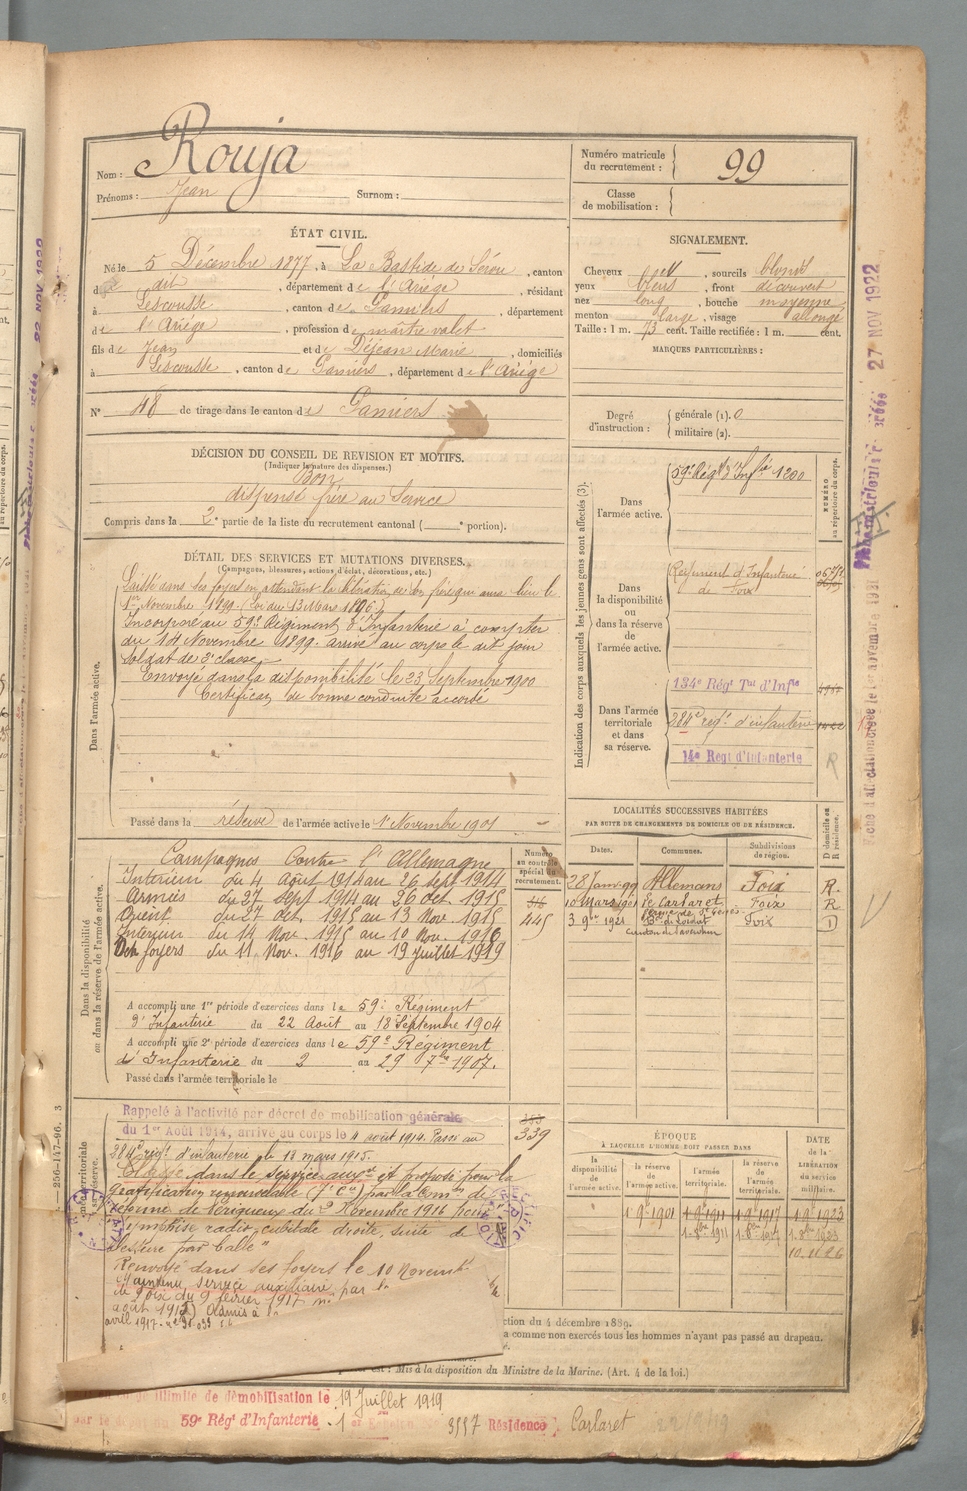 Nom : Rouja
Prénoms : Jean Surnom :
Numéro matricule du recrutement : 99
Classe de mobilisation :
ÉTAT CIVIL.
Né le 5 Décembre 1877, à La Bastide de Sérou, canton
du dit, département de l'Ariège, résidant
à Lescousse, canton de Pamiers, département
de l'Ariège, profession de maître valet
fils de Jean et de Déjean Marie, domiciliés
à Lescousse, canton de Pamiers, département de l'Ariège
N° 48 de tirage dans le canton de Pamiers
SIGNALEMENT.
Cheveux , sourcils blonds
yeux bleus, front découvert
nez long, bouche moyenne
menton large, visage allongé
Taille : 1 m. 73 cent. Taille rectifiée : 1 m. cent.
MARQUES PARTICULIÈRES :
Degré d'instruction : générale (1). 0
militaire (2).
DÉCISION DU CONSEIL DE REVISION ET MOTIFS.
(Indiquer la nature des dispenses.)
Bon
dispensé frère au Service
Compris dans la 2e partie de la liste du recrutement cantonal ( e portion).
DÉTAIL DES SERVICES ET MUTATIONS DIVERSES.
(Campagnes, blessures, actions d'éclat, décorations, etc.)
Dans l'armée active.
Laissé dans ses foyers en attendant la libération de son frère qui aura lieu le
1er Novembre 1899. (Loi du 13 Mars 1896)
Incorporé au 59e Régiment d'Infanterie à compter
du 14 Novembre 1899. arrivé au corps le dit jour
soldat de 2e classe.
Envoyé dans la disponibilité le 23 Septembre 1900
Certificat de bonne conduite accordé
Passé dans la réserve de l'armée active le 1 Novembre 1901
Indication des corps auxquels les jeunes gens sont affectés (3).
NUMÉRO au répertoire du corps.
Dans l'armée active.
59e Régt d'Infie 1200
Dans la disponibilité ou dans la réserve de l'armée active.
Régiment d'Infanterie
de Foix
Dans l'armée territoriale et dans sa réserve.
134e Régt Tal d'Infie
284e régt d'infanterie
14e Regt d'Infanterie
R
LOCALITÉS SUCCESSIVES HABITÉES
PAR SUITE DE CHANGEMENTS DE DOMICILE OU DE RÉSIDENCE.
Dates. Communes. Subdivisions de région. D domicile ou R résidence.
28 Janv. 99 Allemans Foix R.
10 Mars 1901 le Carlaret Foix R
3 9bre 1921 Foix D
Dans la disponibilité ou dans la réserve de l'armée active.
Numéro au contrôle spécial du recrutement.
445
Campagnes Contre l'Allemagne
Intérieur du 4 Août 1914 au 26 sept 1914
Armées du 27 sept 1914 au 26 oct. 1915
Orient du 27 Oct. 1915 au 13 Nov. 1915
Intérieur du 14 Nov. 1915 au 10 Nov. 1916
foyers du 11 Nov. 1916 au 19 juillet 1919
A accompli une 1re période d'exercices dans le 59e Régiment
d'Infanterie du 22 Août au 18 Septembre 1904
A accompli une 2e période d'exercices dans le 59e Régiment
d'Infanterie du 2 au 29 7bre 1907.
Passé dans l'armée territoriale le
Rappelé à l'activité par décret de mobilisation générale
du 1er Août 1914, arrivé au corps le 4 août 1914. Passé au
284e régt d'infanterie le 13 mars 1915.
339
Classé dans le service auxre et proposé pour la
gratification renouvelable par la Comon de
réforme de Périgueux du 2 Novembre 1916 pour
radio cubitale droite, suite de
blessure par balle"
Renvoyé dans ses foyers le 10 Novemb
Maintenu service auxiliaire par l
de Foix du 9 février 1917
août 191 Admis à l
avril 1917.
ÉPOQUE
À LAQUELLE L'HOMME DOIT PASSER DANS
la disponibilité de l'armée active. la réserve de l'armée active. l'armée territoriale. la réserve de l'armée territoriale.
DATE de la LIBÉRATION du service militaire.
1 9 1901 1 9 1911 1 9 1917 1 9 1923
1 8bre 1911 1 8bre 1917 1 8bre 1923
10.11.26
ction du 4 décembre 1889.
a comme non exercés tous les hommes n'ayant pas passé au drapeau.
: Mis à la disposition du Ministre de la Marine. (Art. 4 de la loi.)
illimité de démobilisation le 19 Juillet 1919
par le 59e Régt d'Infanterie 1er Echelon 3557 Résidence Carlaret
256-147-96. 3
27 NOV 1922
22 NOV 1922